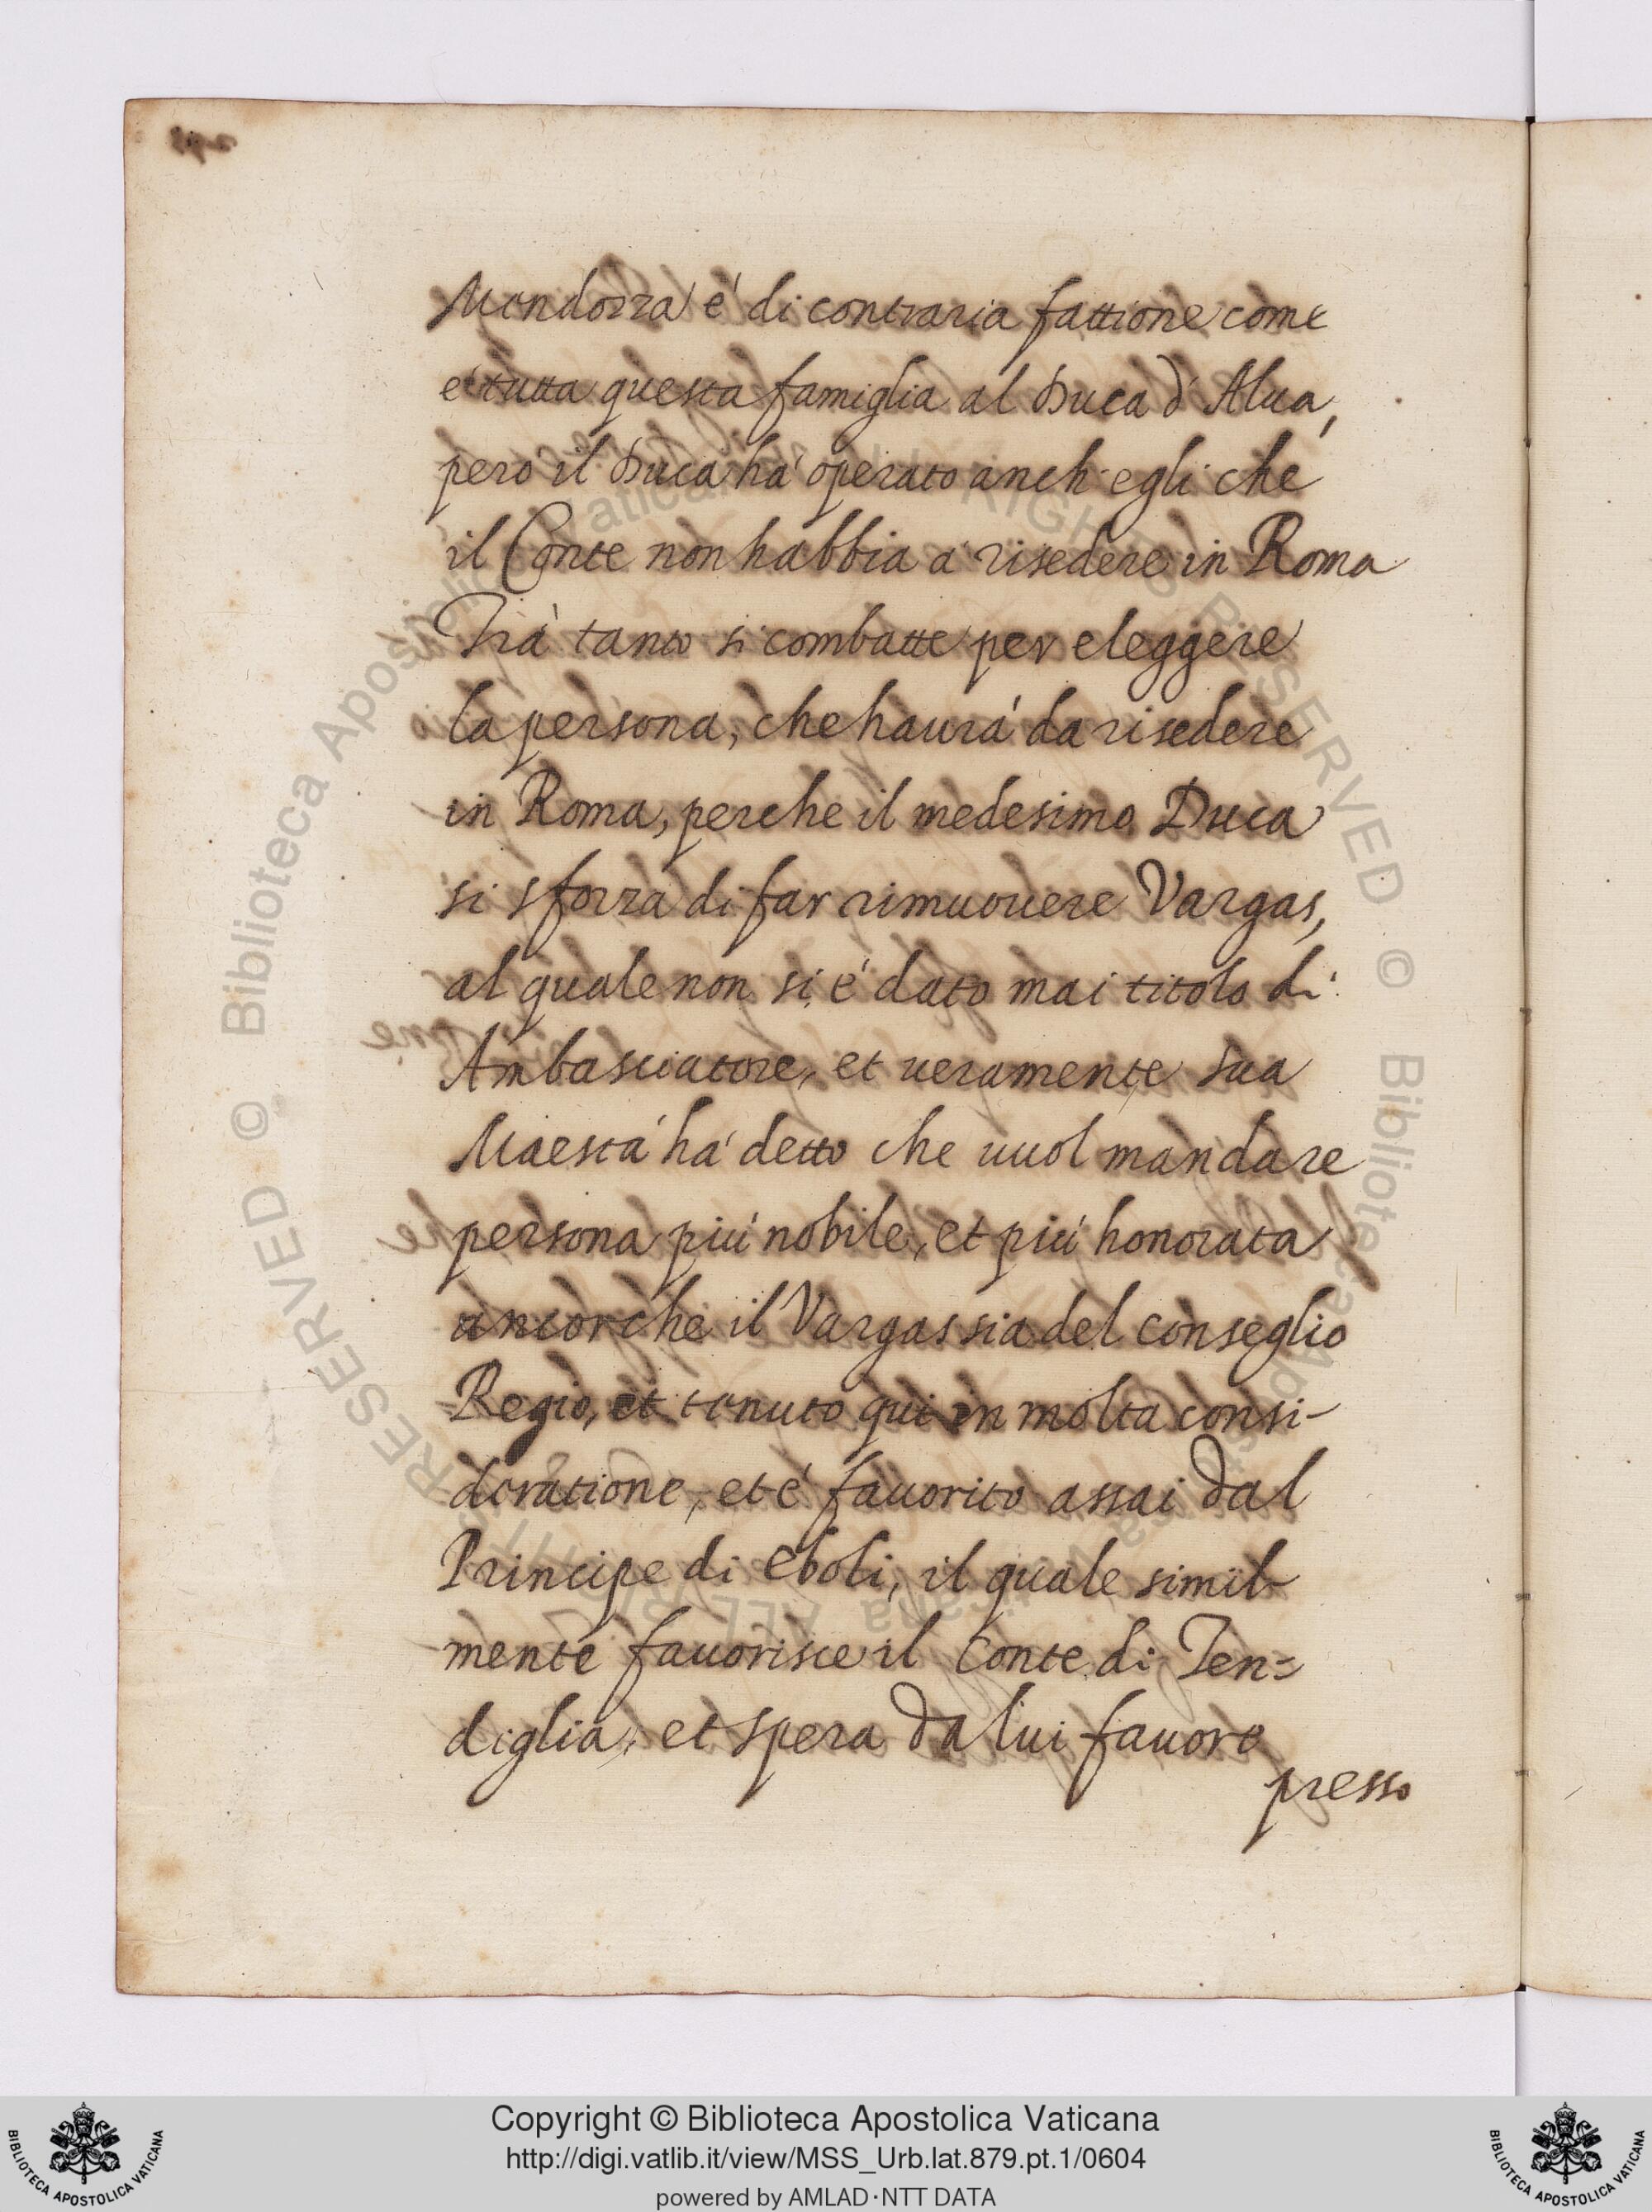 Mendozza é di contraria fattione come
é tutta questa famiglia al Duca d' Alua,
pero il Duca há operato anch' egli che
il Conte non habbia a risedere in Roma
Trá tanto si combatte per eleggere
la persona, che haurá da risedere
in Roma, perche il medesimo Duca
si sforza di far rimuouere Vargas,
al quale non si é dato mai titolo di
Ambasciatore, et ueramente sua
Maestá há detto che uuol mandare
persona piú nobile, et piú honorata
ancorche il Vargas sia del conseglio
Regio, et tenuto qui in molta consi-
deratione, et é fauorito assai dal
Principe di Eboli, il quale simil-
mente fauorisce il Conte di Ten=
diglia, et spera da lui fauore
presso
Copyright © Biblioteca Apostolica Vaticana
http://digi.vatlib.it/view/MSS_Urb.lat.879.pt.1/0604
powered by AMLAD·NTT DATA
BIBLIOTECA APOSTOLICA VATICANA
BIBLIOTECA APOSTOLICA VATICANA